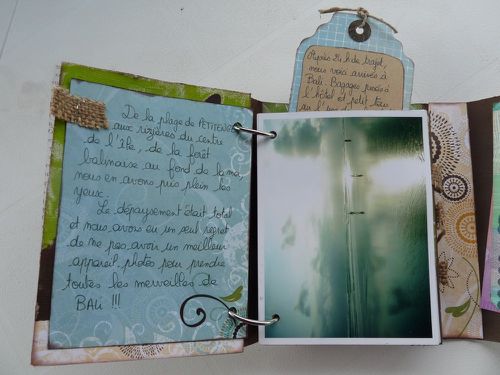 De la plage de PETITENG
aux rizières du centre
de l'île, de la forêt
balinaise au fond de la mer,
nous en avons pris plein les
yeux.
Le dépaysement était total
et nous avons eu un seul regret
de ne pas avoir un meilleur
appareil photos pour prendre
toutes les merveilles de
BALI !!!
Après 24h de trajet,
nous voici arrivés à
Bali. Bagages posés à
l'hôtel et petit tour